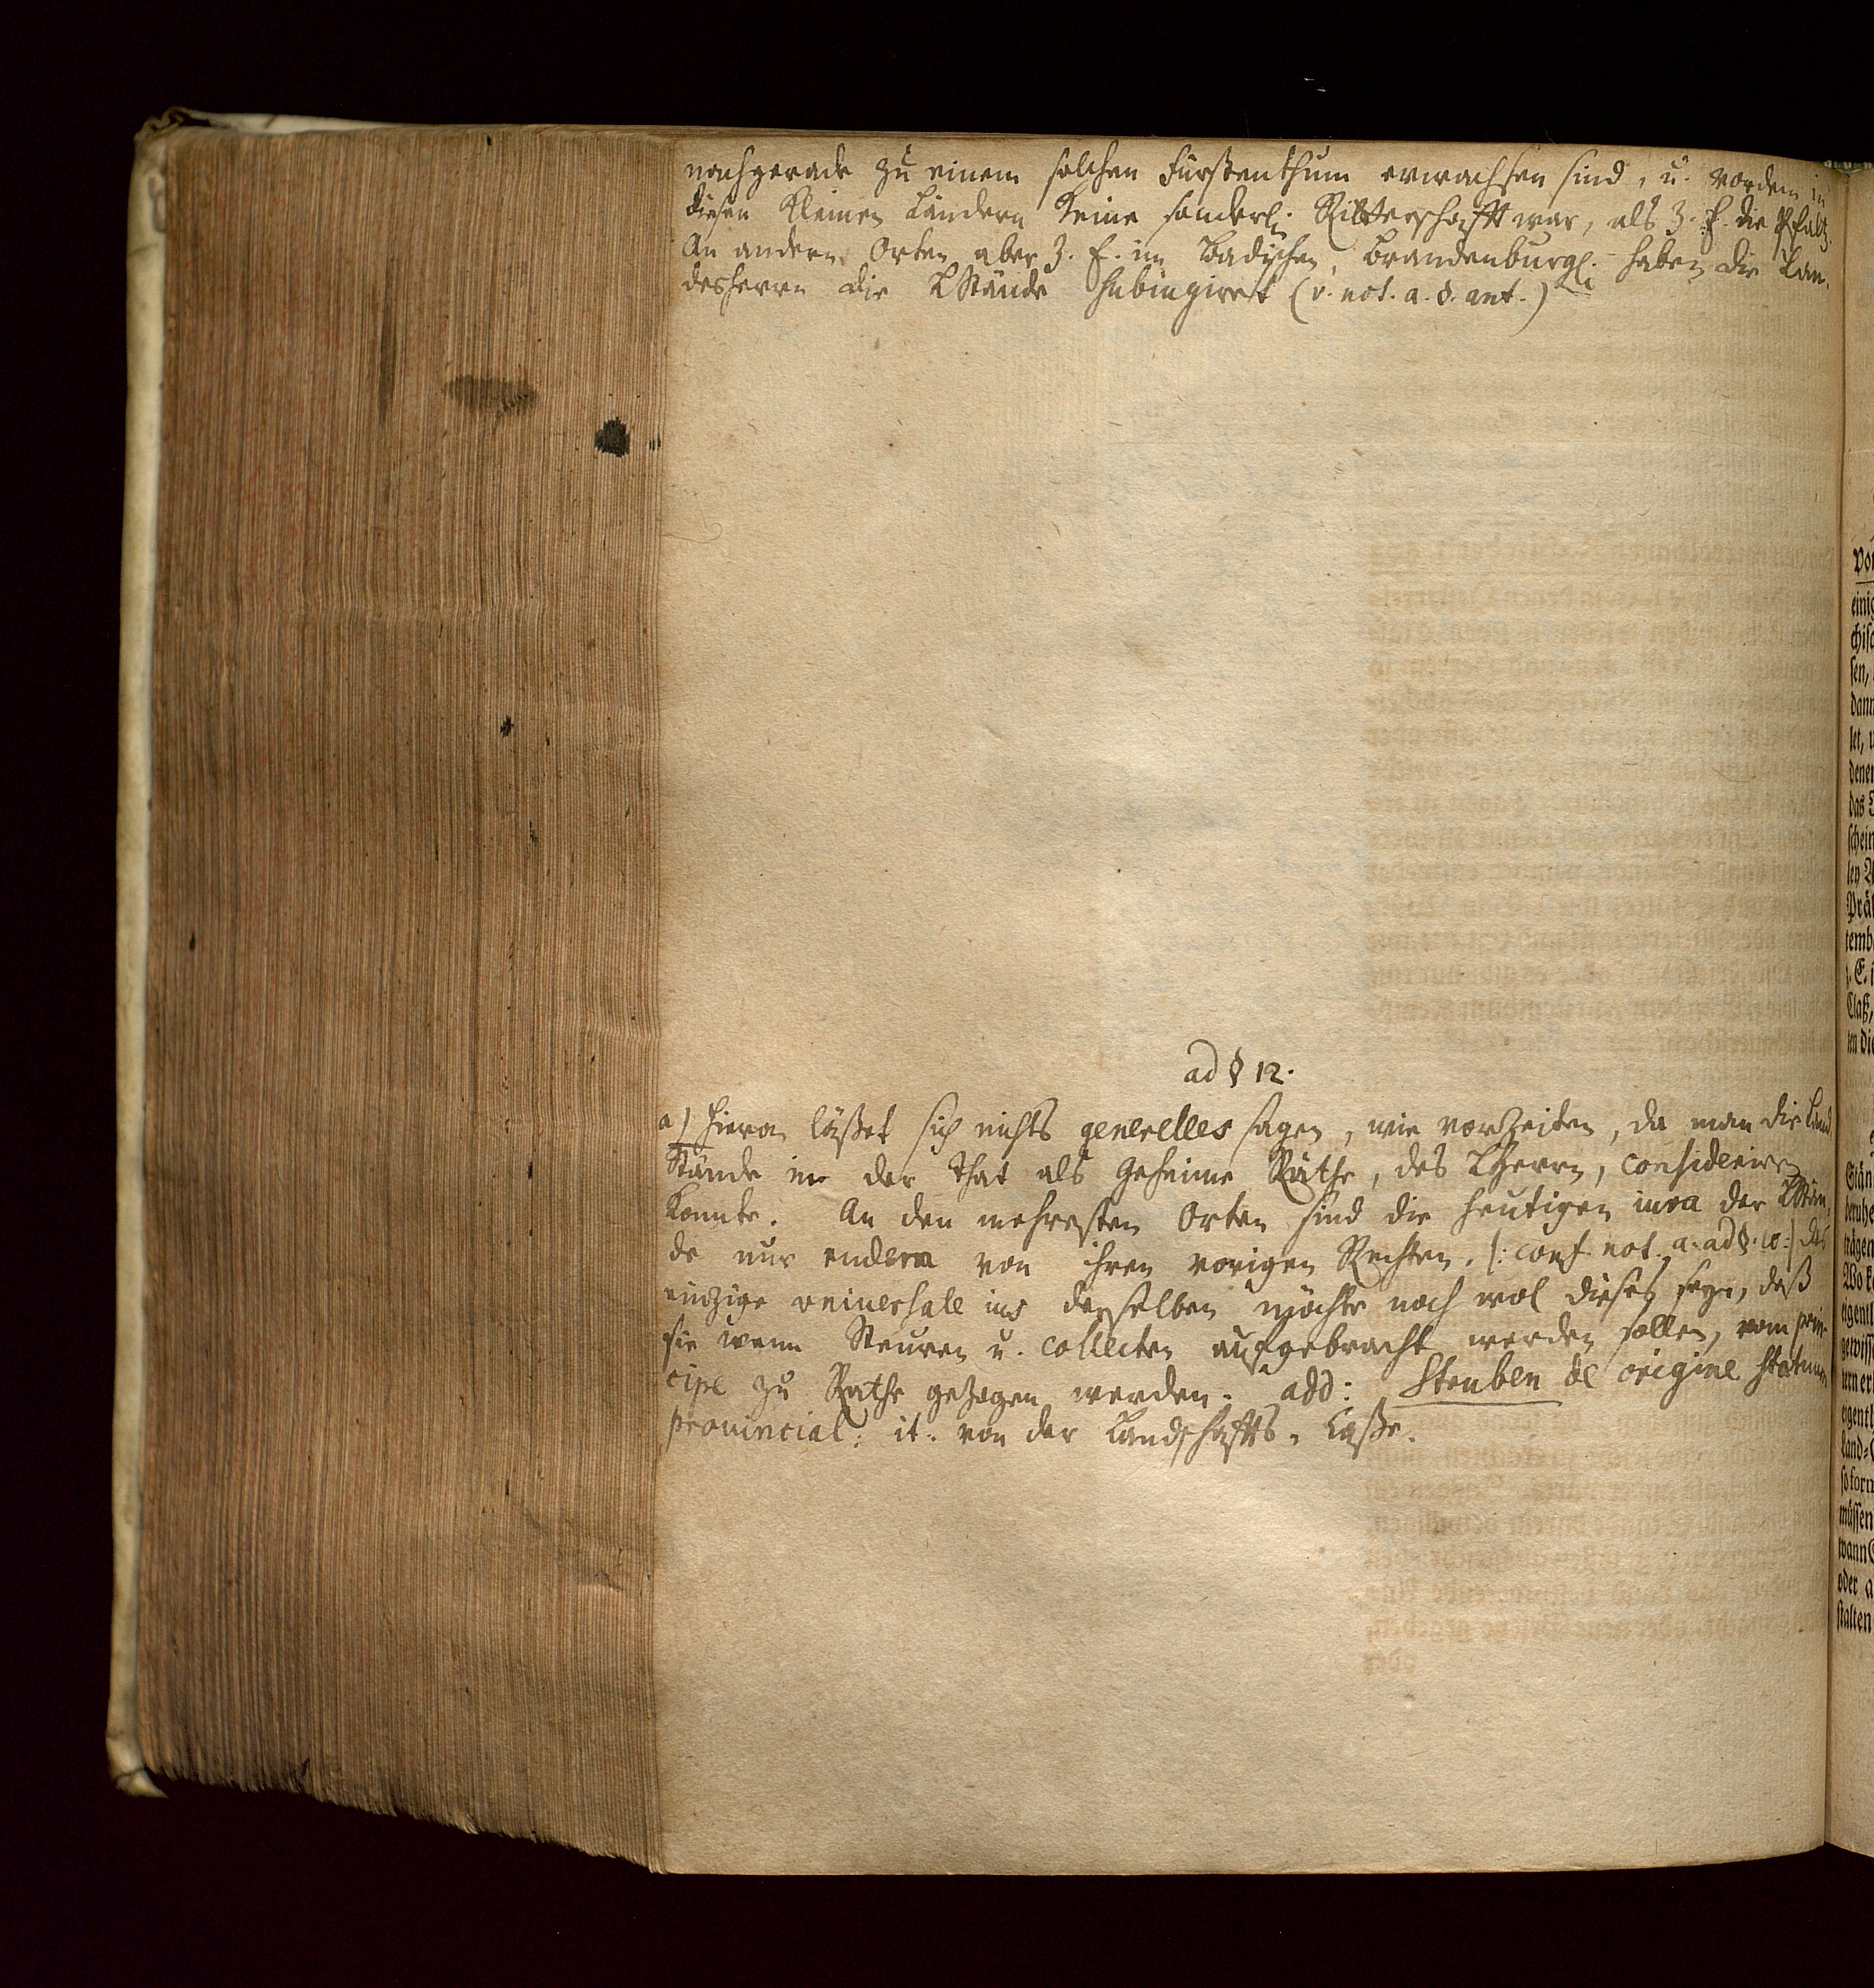 nachgerade zu einem solchen Fürstenthum erwachsen sind, u. vordem in
diesen kleinen Ländern keine sonderl. Ritterschafft war, als z. E. die Pfaltz.
An andern Orten aber z. E. im Badischen, Brandenburgl. haben die Lan-
desherrn die LStände subiugiret (v. not. a. §. ant.)
ad § 12.
a) hieran läßet sich nichts generelles sagen, wie vorzeiten, da man die Land
Stände in der that als Geheime Räthe, des LHerrn, consideriren
konnte. An den mehresten Orten sind die heutigen iura der LStän-
de nur rudera von ihren vorigen Rechten. (: conf. not. a. ad §. 10 :) das
einzige universale ius derselben möchte noch wol dieses seyn, daß
sie wenn Steuren u. collecten aufgebracht werden sollen, vom prin-
cipe zu Rathe gezogen werden. add: Struben de origine statuum
provincial: it. von der Landschaffts-Casse.
Vor
einig
chisc
sen,
dann
let, u
denen
das
schein
ley
Prä
temb
z. E.
Claß,
in die
Stän
beruhe
trägen
Wo k
eigentl
gewiss
tern er
eigentl
Land-
sofern
müssen
wann
oder a
stalten